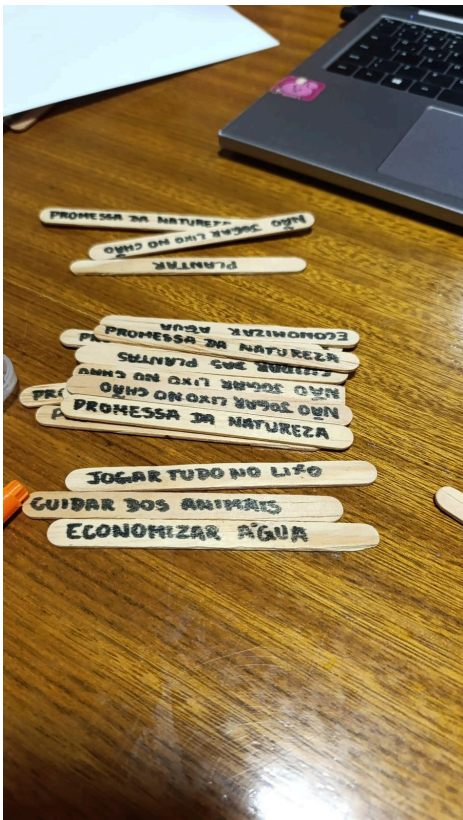 PROMESSA DA NATUREZA
NÃO JOGAR LIXO NO CHÃO
PLANTAR
ECONOMIZAR AGUA
PROMESSA DA NATUREZA
CUIDAR DAS PLANTAS
NÃO JOGAR LIXO NO CHÃO
NÃO JOGAR LIXO NO CHÃO
PROMESSA DA NATUREZA
JOGAR TUDO NO LIXO
CUIDAR DOS ANIMAIS
ECONOMIZAR ÁGUA